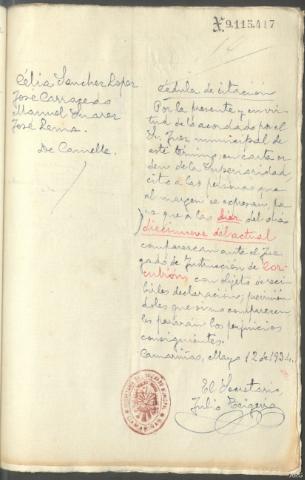 N.9.115.417
Célia Sanchez Lopez
José Carracedo
Manuel Suarez
José Lema
De Camelle.
Cédula de citación
Por la presente y en vir-
tud de lo acordado por el
Sr. Juez municipal de
este término, en carta or-
den de la Superioridad
cito a las personas que
al margen se expresan, pa-
ra que a las diez del dia
diecinueve del actual
comparezcan ante el Juz-
gado de Instrucción de Cor-
cubión, con objeto de reci-
birles declaracion; previnien-
doles que si no comparecen
les pararán los perjuicios
consiguientes.
Camariñas, Mayo 12 de 1934.
El Secretario
Julio